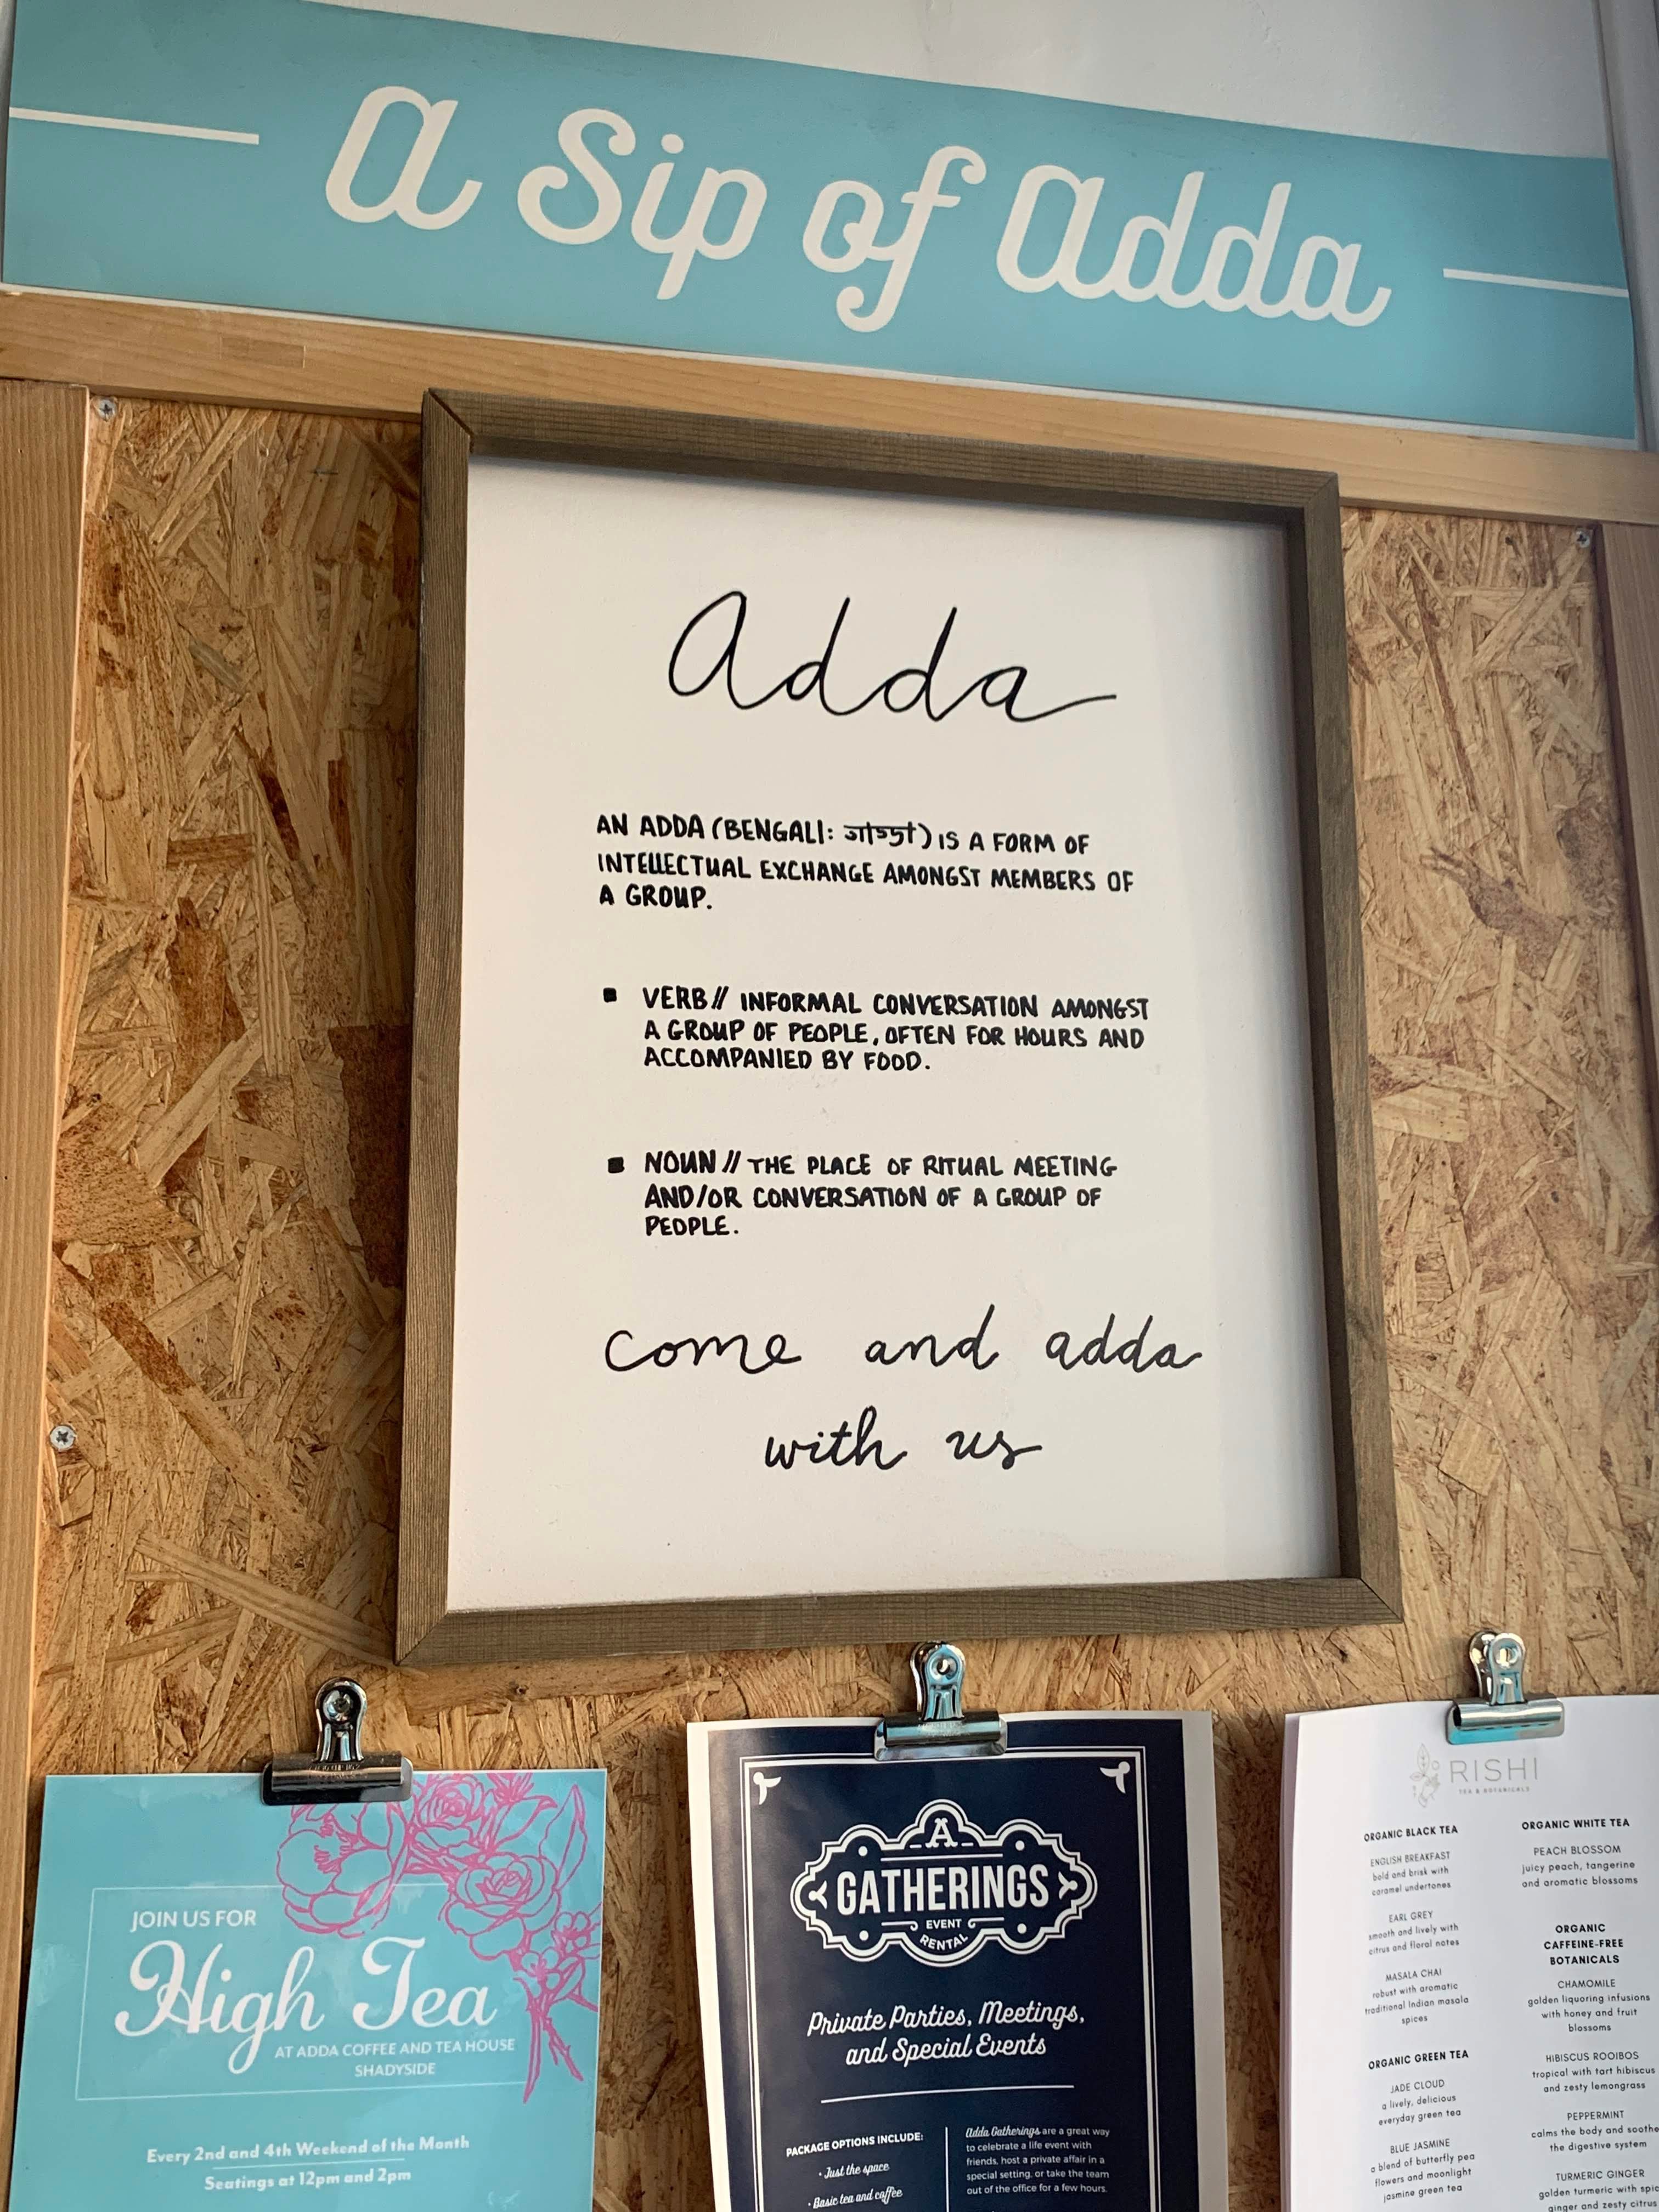 a Sip of adda
adda
AN ADDA (BENGALI: আড্ডা) IS A FORM OF
INTELLECTUAL EXCHANGE AMONGST MEMBERS OF
A GROUP.
▪ VERB // INFORMAL CONVERSATION AMONGST
A GROUP OF PEOPLE, OFTEN FOR HOURS AND
ACCOMPANIED BY FOOD.
▪ NOUN // THE PLACE OF RITUAL MEETING
AND/OR CONVERSATION OF A GROUP OF
PEOPLE.
come and adda
with us
JOIN US FOR
High Tea
AT ADDA COFFEE AND TEA HOUSE
SHADYSIDE
Every 2nd and 4th Weekend of the Month
Seatings at 12pm and 2pm
A
GATHERINGS
EVENT
RENTAL
Private Parties, Meetings,
and Special Events
PACKAGE OPTIONS INCLUDE:
• Just the space
• Basic tea and coffee
Adda Gatherings are a great way
to celebrate a life event with
friends, host a private affair in a
special setting, or take the team
out of the office for a few hours.
RISHI
TEA & BOTANICALS
ORGANIC BLACK TEA
ENGLISH BREAKFAST
bold and brisk with
caramel undertones
EARL GREY
smooth and lively with
citrus and floral notes
MASALA CHAI
robust with aromatic
traditional Indian masala
spices
ORGANIC GREEN TEA
JADE CLOUD
a lively, delicious
everyday green tea
BLUE JASMINE
a blend of butterfly pea
flowers and moonlight
jasmine green tea
ORGANIC WHITE TEA
PEACH BLOSSOM
juicy peach, tangerine
and aromatic blossoms
ORGANIC
CAFFEINE-FREE
BOTANICALS
CHAMOMILE
golden liquoring infusions
with honey and fruit
blossoms
HIBISCUS ROOIBOS
tropical with tart hibiscus
and zesty lemongrass
PEPPERMINT
calms the body and soothe
the digestive system
TURMERIC GINGER
golden turmeric with spic
ginger and zesty citrus